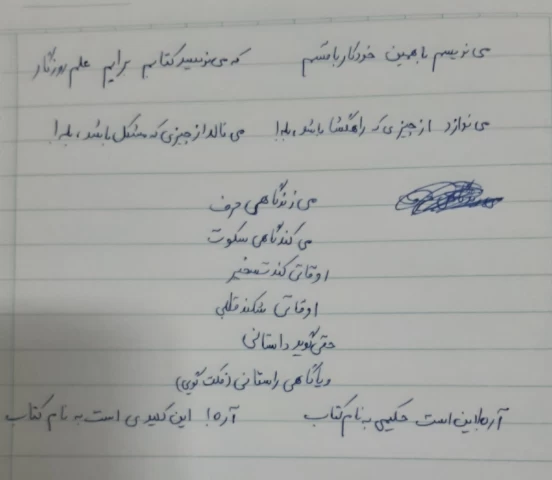 می نویسم با همین خودکار با قلم که می نویسید کتابم برایم علم روزگار
می نوازد از چیزی که راهگشا باشد، بله! می نالد از چیزی که مشکل باشد، بله!
می زند گاهی حرف
می کند گاهی سکوت
اوقاتی کند تسخیر
اوقاتی شکند قلبی
حتی گوید داستانی
ویا گاهی راستانی (نکت گوی)
آره! این است حکیمی به نام کتاب آره! این کلیدی است به نام کتاب